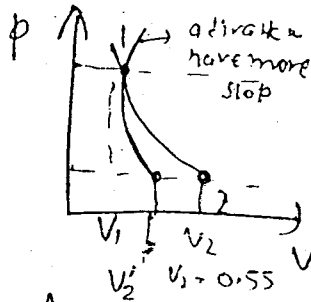 P
adirak~
have more
slop
V₁ V₂ V
V₂' V₂ = 0.55